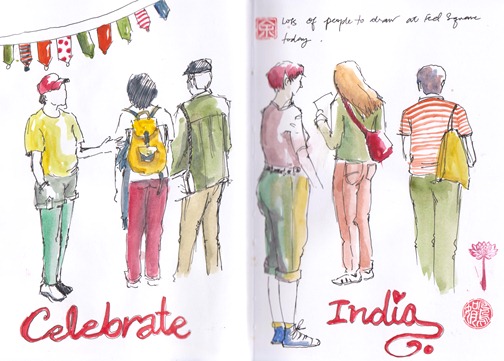 Lots of people to draw at Fed Square
today.
Celebrate India